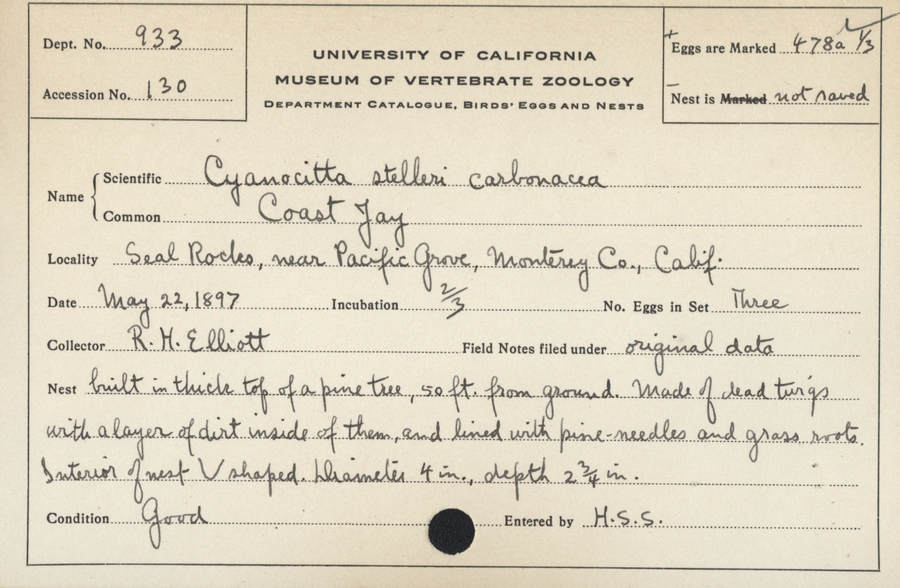 Dept. No. 933
Accession No. 130
UNIVERSITY OF CALIFORNIA
MUSEUM OF VERTEBRATE ZOOLOGY
DEPARTMENT CATALOGUE, BIRDS' EGGS AND NESTS
+ Eggs are Marked 478a 1/3
Nest is Marked not saved
Name
Scientific Cyanocitta stelleri carbonacea
Common Coast Jay
Locality Seal Rocks, near Pacific Grove, Monterey Co., Calif.
Date May 22, 1897 Incubation 2/3 No. Eggs in Set Three
Collector R. H. Elliott Field Notes filed under original data
Nest built in thick top of a pine tree, 50 ft. from ground. Made of dead twigs
with a layer of dirt inside of them, and lined with pine-needles and grass roots.
Interior of nest V shaped. Diameter 4 in., depth 2 3/4 in.
Condition Good Entered by H.S.S.